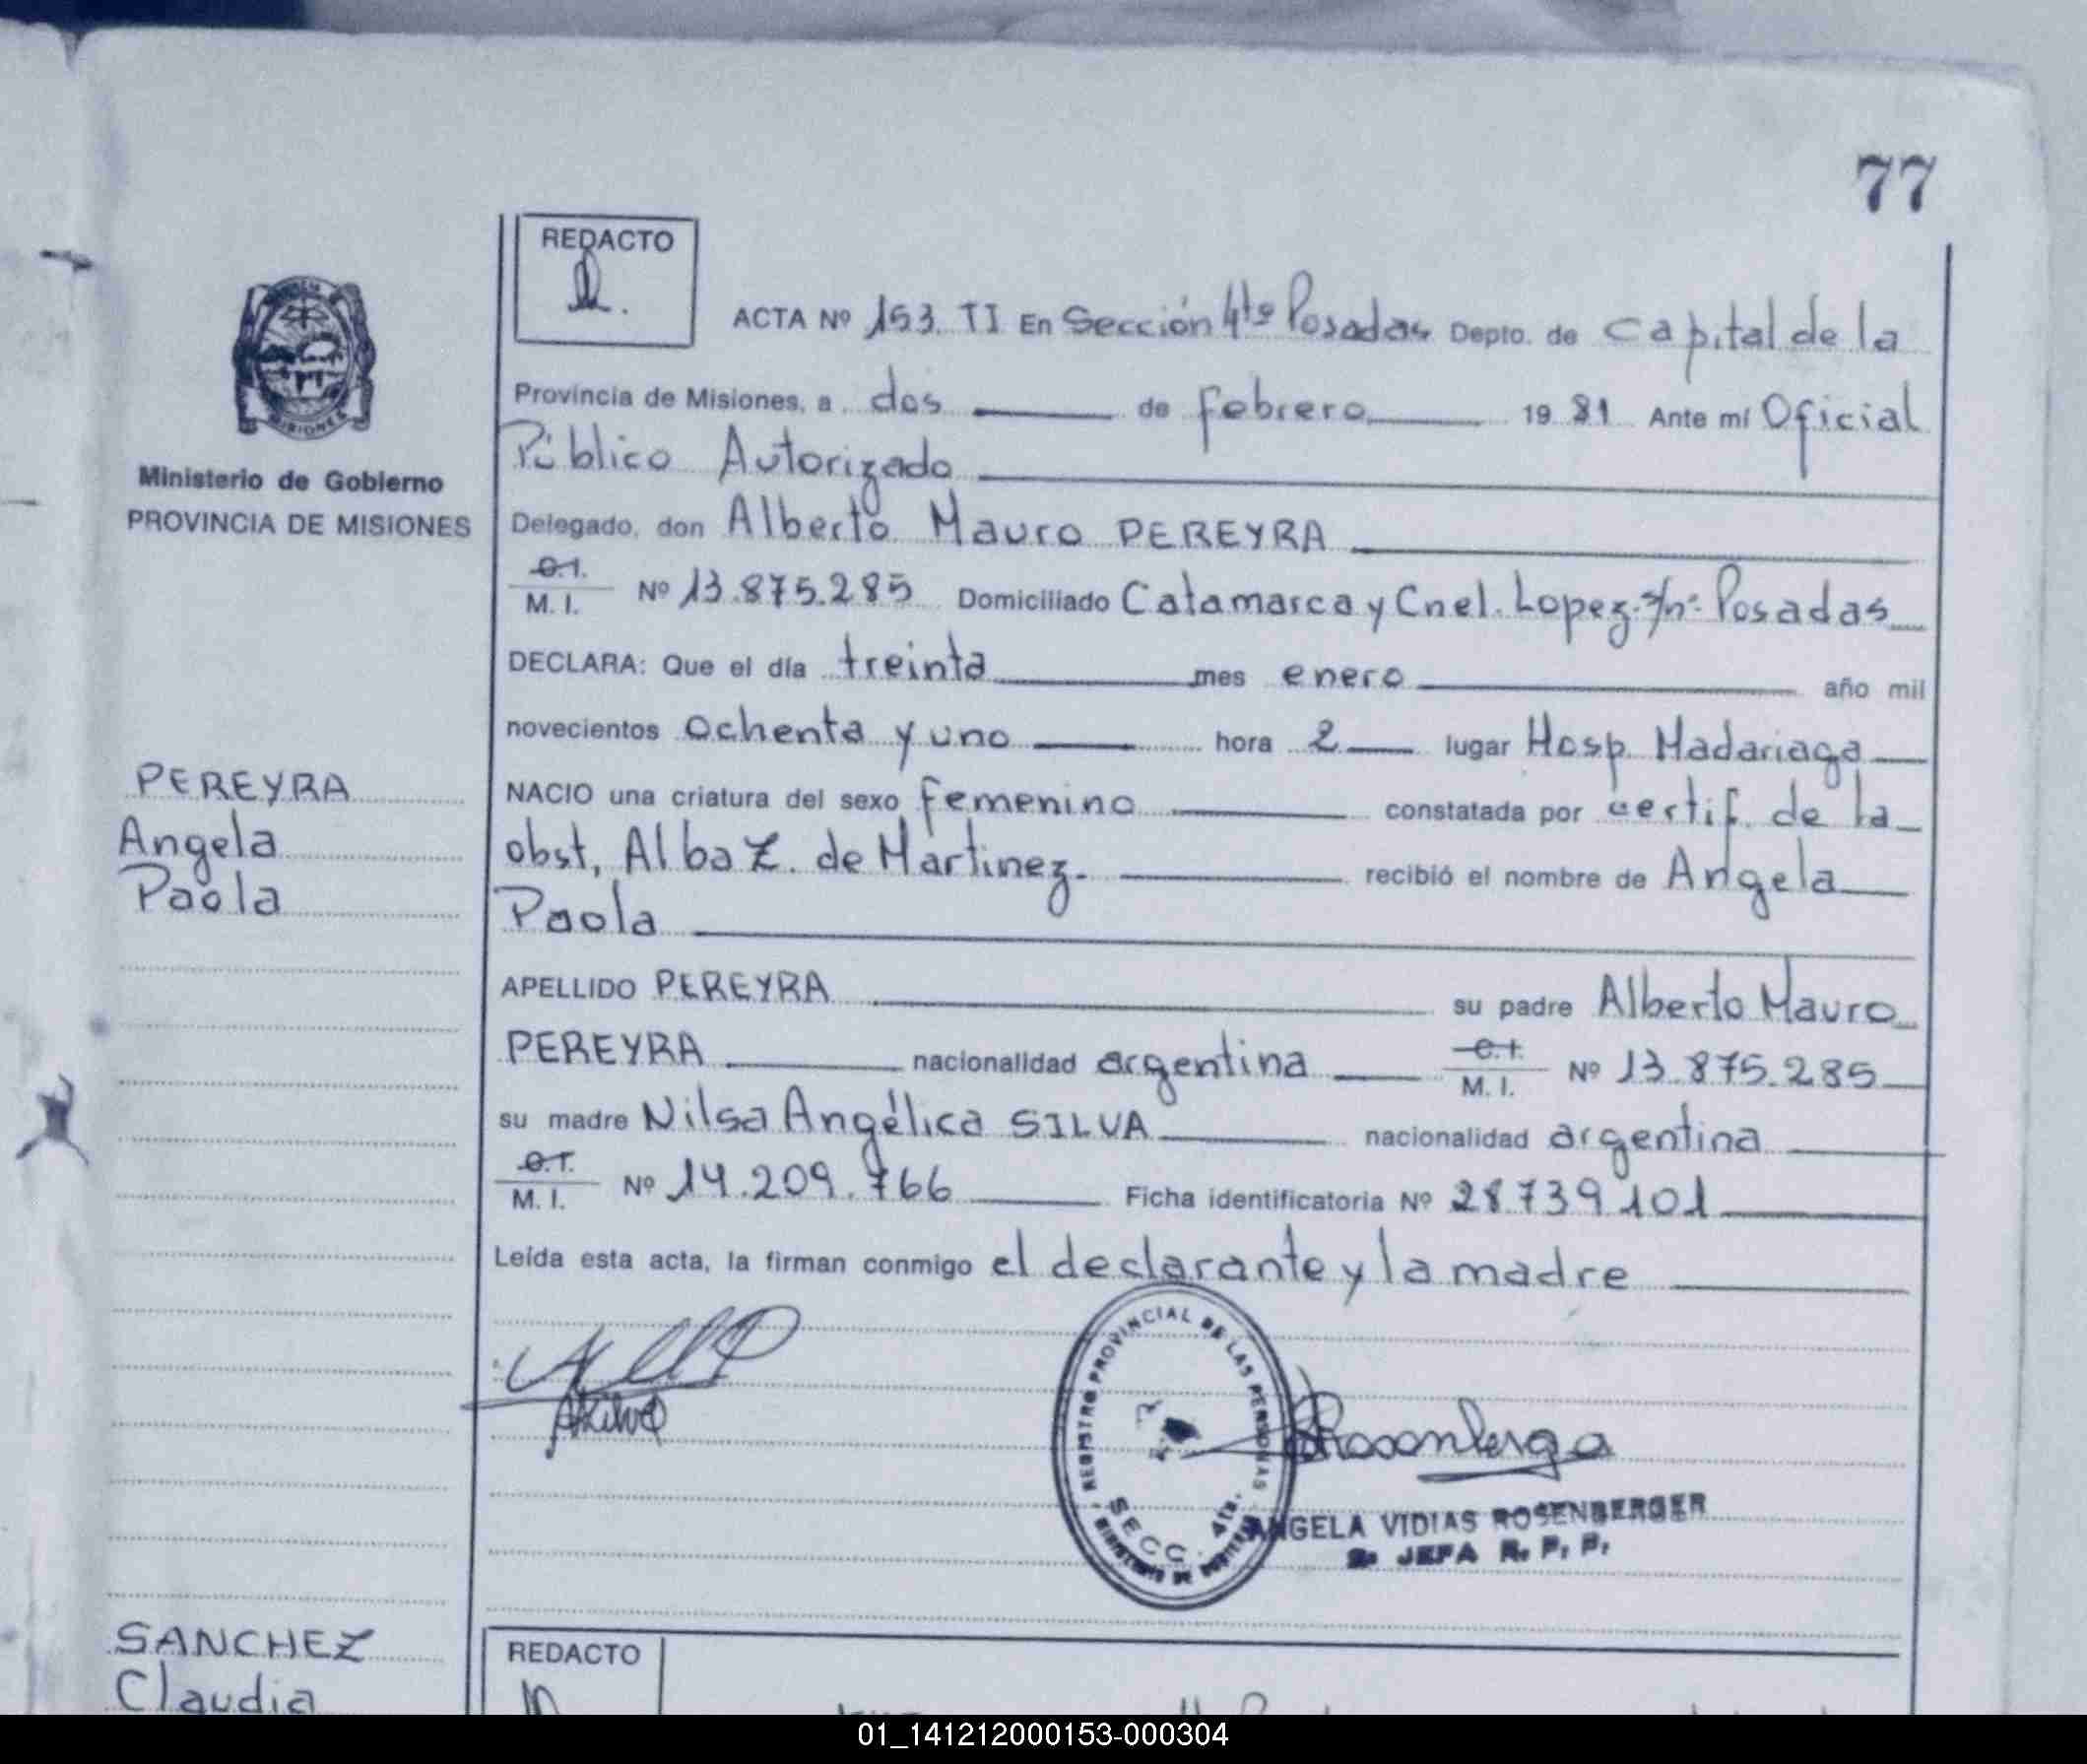 77
REDACTO
ACTA Nº 153. TI En Sección 4ta Posadas Depto. de Capital de la
Provincia de Misiones, a dos de febrero 19 81 Ante mí Oficial
Público Autorizado
Ministerio de Gobierno
PROVINCIA DE MISIONES
Delegado, don Alberto Mauro PEREYRA
C.I.
M. I. Nº 13.875.285 Domiciliado Catamarca y Cnel. Lopez s/nº Posadas
DECLARA: Que el día treinta mes enero año mil
novecientos ochenta y uno hora 2 lugar Hosp. Madariaga
PEREYRA
Angela
Paola
NACIO una criatura del sexo femenino constatada por certif. de la
obst, Alba Z. de Martinez. recibió el nombre de Angela
Paola
APELLIDO PEREYRA su padre Alberto Mauro
PEREYRA nacionalidad argentina C.I. M. I. Nº 13.875.285
su madre Nilsa Angélica SILVA nacionalidad argentina
C.I.
M. I. Nº 14.209.766 Ficha identificatoria Nº 28739101
Leída esta acta, la firman conmigo el declarante y la madre
REGISTRO PROVINCIAL DE LAS PERSONAS
SECC. 4ta.
MINISTERIO DE GOBIERNO
ANGELA VIDIAS ROSENBERGER
2º JEFA R. P. P.
SANCHEZ
Claudia
REDACTO
01_141212000153-000304